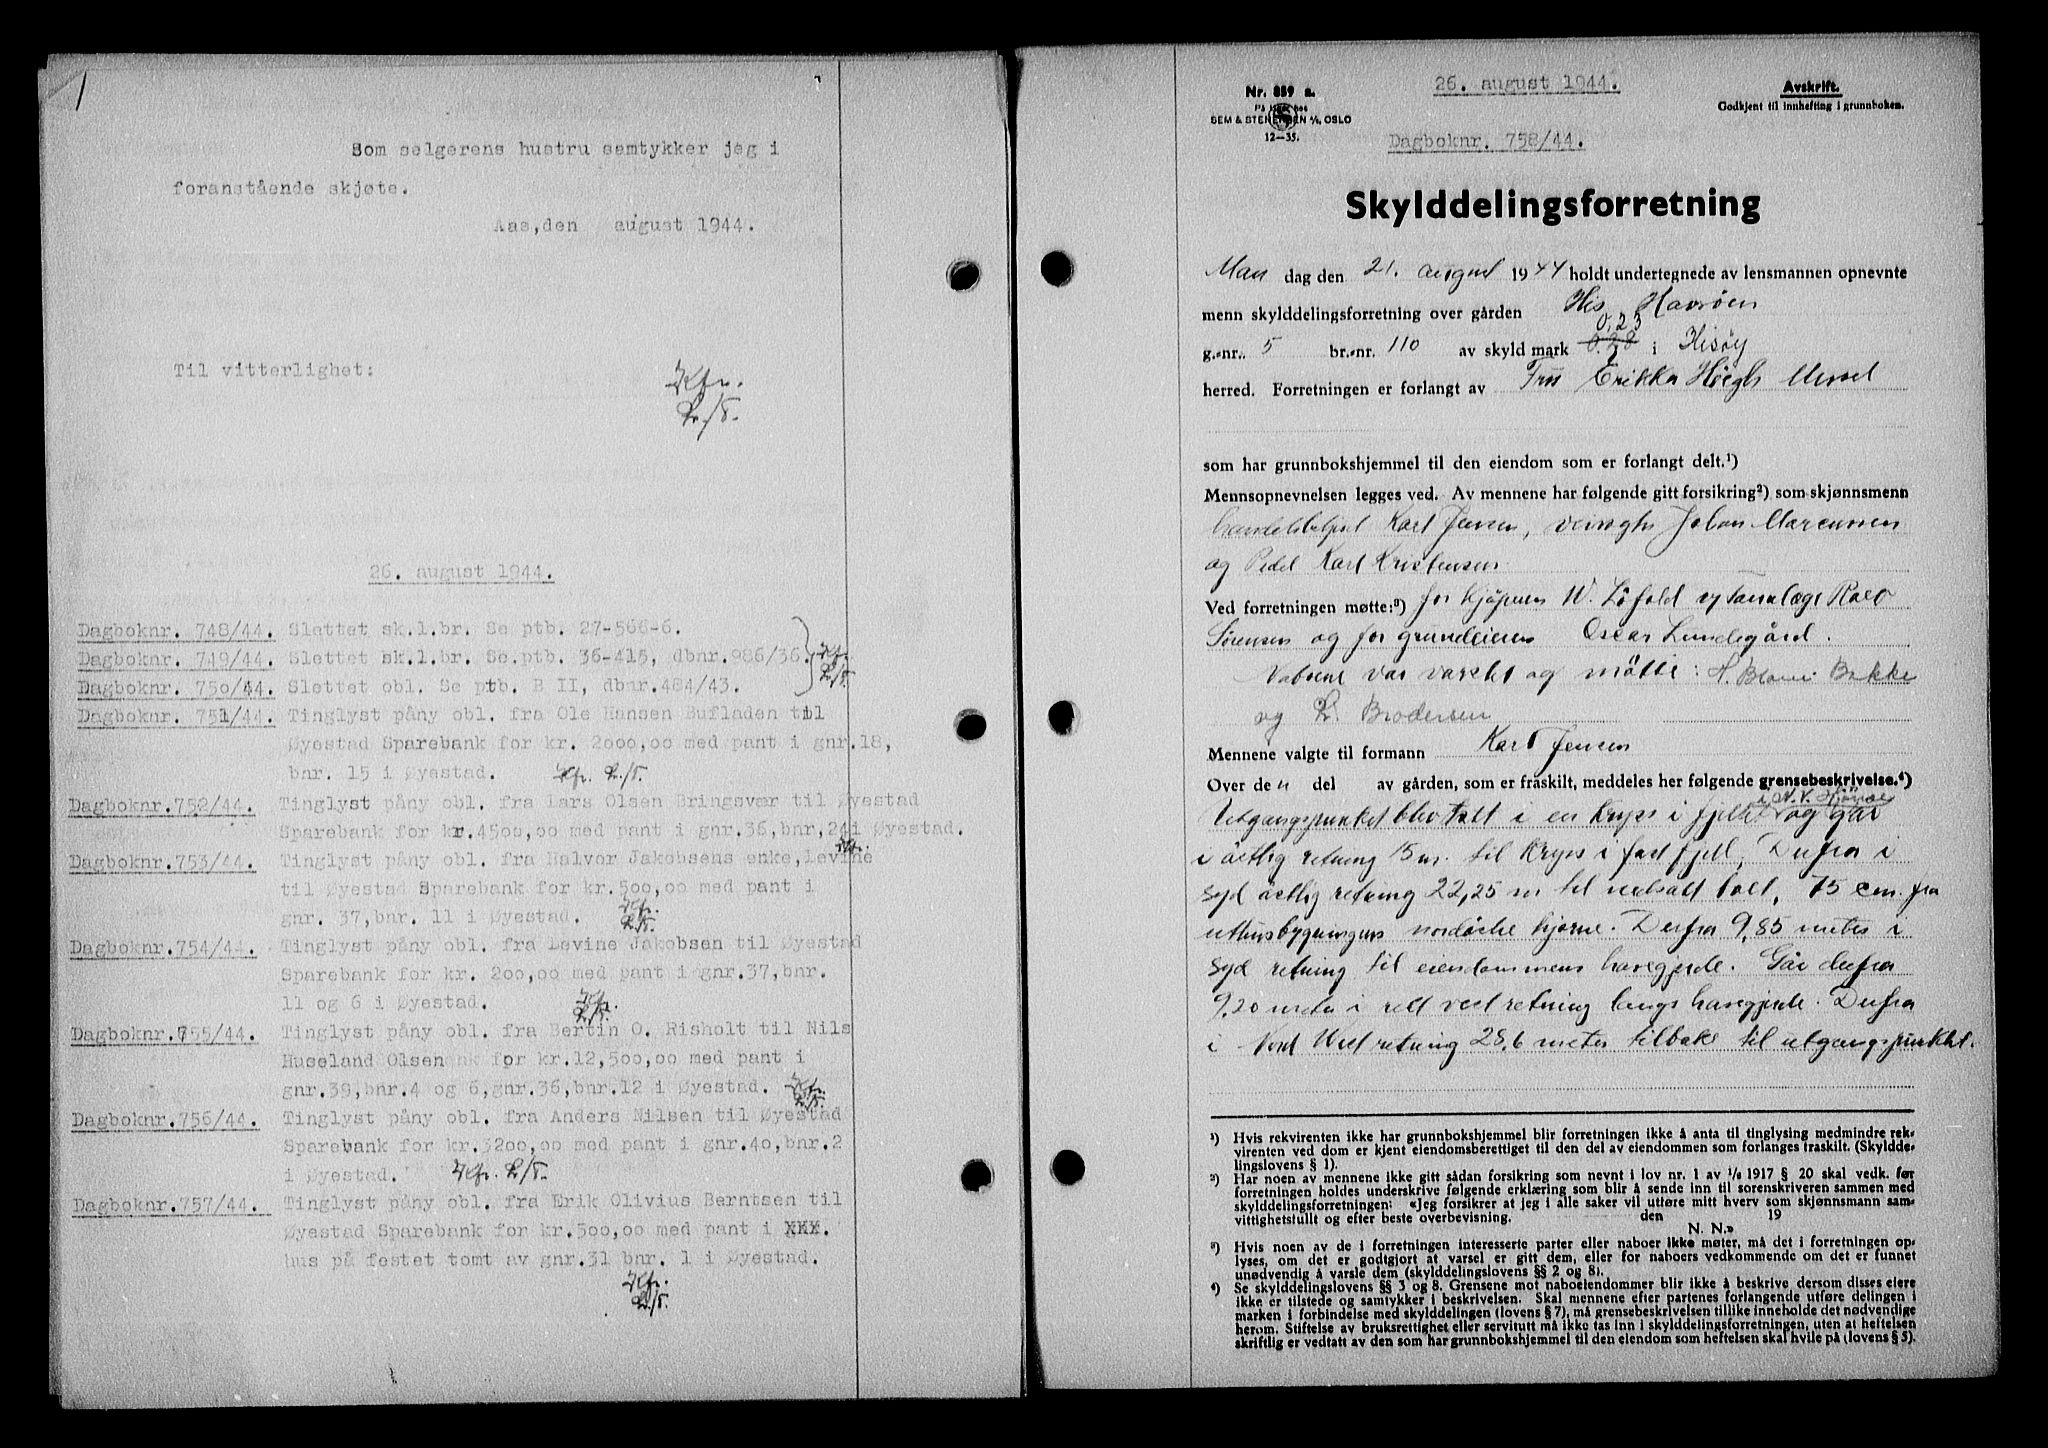 Som selgerens hustru samtykker jeg i
foranstående skjøte.
Aas,den august 1944.
Til vitterlighet:
26. august 1944.
Dagboknr. 748/44. Slettet sk.l.br. Se ptb. 27-566-6.
Dagboknr. 749/44. Slettet sk.l.br. Se.ptb. 36-415, dbnr.986/36.
Dagboknr. 750/44. Slettet obl. Se ptb. B II, dbnr.484/43.
Dagboknr. 751/44. Tinglyst påny obl. fra Ole Hansen Bufladen til
Øyestad Sparebank for kr. 2000,00 med pant i gnr.18,
bnr. 15 i Øyestad.
Dagboknr.752/44. Tinglyst påny obl. fra Lars Olsen Bringsvær til Øyestad
Sparebank for kr.4500,00 med pant i gnr.36,bnr,24i Øyestad.
Dagboknr.753/44. Tinglyst påny obl. fra Halvor Jakobsens enke,Levine
til Øyestad Sparebank for kr.500,00 med pant i
gnr. 37,bnr. 11 i Øyestad.
Dagboknr.754/44. Tinglyst påny obl. fra Levine Jakobsen til Øyestad
Sparebank for kr. 200,00 med pant i gnr.37,bnr.
11 og 6 i Øyestad.
Dagboknr.755/44. Tinglyst påny obl. fra Bertin O. Risholt til Nils
Huseland Olsen for kr.12,500,00 med pant i
gnr.39,bnr.4 og 6,gnr.36,bnr.12 i Øyestad.
Dagboknr.756/44. Tinglyst påny obl. fra Anders Nilsen til Øyestad
Sparebank for kr.3200,00 med pant i gnr.40,bnr.2
i Øyestad.
Dagboknr.757/44. Tinglyst påny obl. fra Erik Olivius Berntsen til
Øyestad Sparebank for kr.500,00 med pant i XXX.
hus på festet tomt av gnr.31 bnr. 1 i Øyestad.
Nr. 859 a.
På lager hos
SEM & STENERSEN A/S, OSLO
12—35.
26. august 1944.
Avskrift.
Godkjent til innhefting i grunnboken.
Dagboknr. 758/44.
Skylddelingsforretning
Man dag den 21. august 1944 holdt undertegnede av lensmannen opnevnte
menn skylddelingsforretning over gården His Havsöen
0,23
g.-nr. 5 br.-nr. 110 av skyld mark 0.28 i Hisöy
herred. Forretningen er forlangt av Fru Erikka Höegh Ussel
som har grunnbokshjemmel til den eiendom som er forlangt delt.¹)
Mennsopnevnelsen legges ved. Av mennene har følgende gitt forsikring²) som skjønnsmenn
handelsbetjent Karl Jensen, Johan Marcussen
og Pedel Karl Kristensen
Ved forretningen møtte:³) for kjöperen W. Löfold og Tannlæge Rolv
Sörensen og for grundeieren Oscar Lundegård.
Naboene var varslet og mötte: H. Blom Bakke
og L. Brodersen
Mennene valgte til formann Karl Jensen
Over de n del av gården, som er fraskilt, meddeles her følgende grensebeskrivelse.⁴)
i N.V. Hjörne
Utgangspunktet blev tatt i en Kryss i fjell og går
i östlig retning 15 m. til Kryss i fast fjell, Derfra i
syd östlig retning 22,25 m til nedsatt bolt, 75 cm. fra
uthusbygningens nordöstre hjörne. Derfra 9,85 meter i
syd retning til eiendommens havegjerde. Går derfra
9,20 meter i rett vest retning langs havegjerde. Derfra
i Nord Vest retning 28,6 meter tilbake til utgangspunktet.
¹) Hvis rekvirenten ikke har grunnbokshjemmel blir forretningen ikke å anta til tinglysing medmindre rek-
virenten ved dom er kjent eiendomsberettiget til den del av eiendommen som forlanges fraskilt. (Skyldde-
lingslovens § 1).
²) Har noen av mennene ikke gitt sådan forsikring som nevnt i lov nr. 1 av 1/8 1917 § 20 skal vedk. før
forretningen holdes underskrive følgende erklæring som blir å sende inn til sorenskriveren sammen med
skylddelingsforretningen: «Jeg forsikrer at jeg i alle saker vil utføre mitt hverv som skjønnsmann sam-
vittighetsfullt og efter beste overbevisning. den 19
N. N.»
³) Hvis noen av de i forretningen interesserte parter eller naboer ikke møter, må det i forretningen op-
lyses, om det er godtgjort at varsel er gitt dem, eller for naboers vedkommende om det er funnet
unødvendig å varsle dem (skylddelingslovens §§ 2 og 8).
⁴) Se skylddelingslovens §§ 3 og 8. Grensene mot naboeiendommer blir ikke å beskrive dersom disses eiere
ikke er tilstede og samtykker i beskrivelsen. Skal mennene efter partenes forlangende utføre delingen i
marken i forbindelse med skylddelingen (lovens § 7), må grensebeskrivelsen tillike inneholde det nødvendige
herom. Stiftelse av bruksrettighet eller servitutt må ikke tas inn i skylddelingsforretningen, uten at heftelsen
skriftlig er vedtatt av den som har grunnbokshjemmel til den eiendom som heftelsen skal hvile på (lovens § 5).